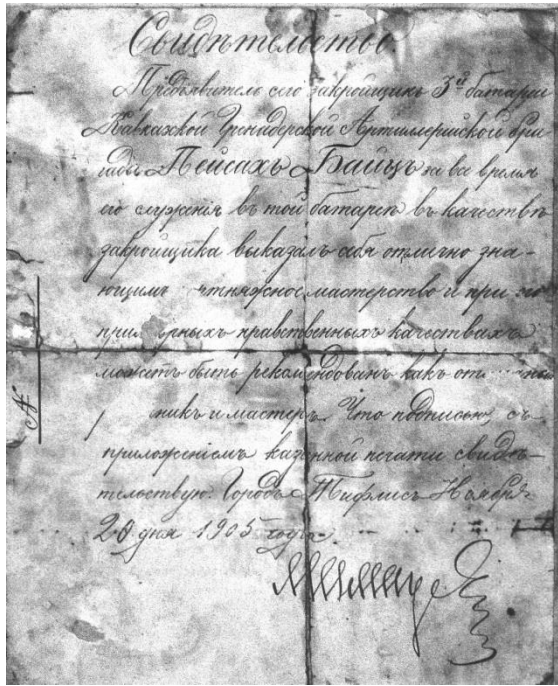 Свидѣтельство
Предъявитель сего закройщикъ 3й батареи
Кавказской Гренадерской Артиллерійской бри
гады Пейсахъ Байцъ за все время
его служенія въ той батареѣ въ качествѣ
закройщика выказалъ себя отлично зна-
ющимъ мастерство и при его
нравственныхъ качествахъ
можетъ быть рекомендованъ какъ
и мастеръ. Что подписью, съ
приложеніемъ казенной печати свидѣ-
тельствую. Городъ Тифлисъ Ноября
20 дня 1905 года.